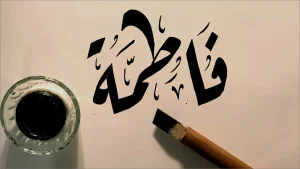 فَاطِمَّة